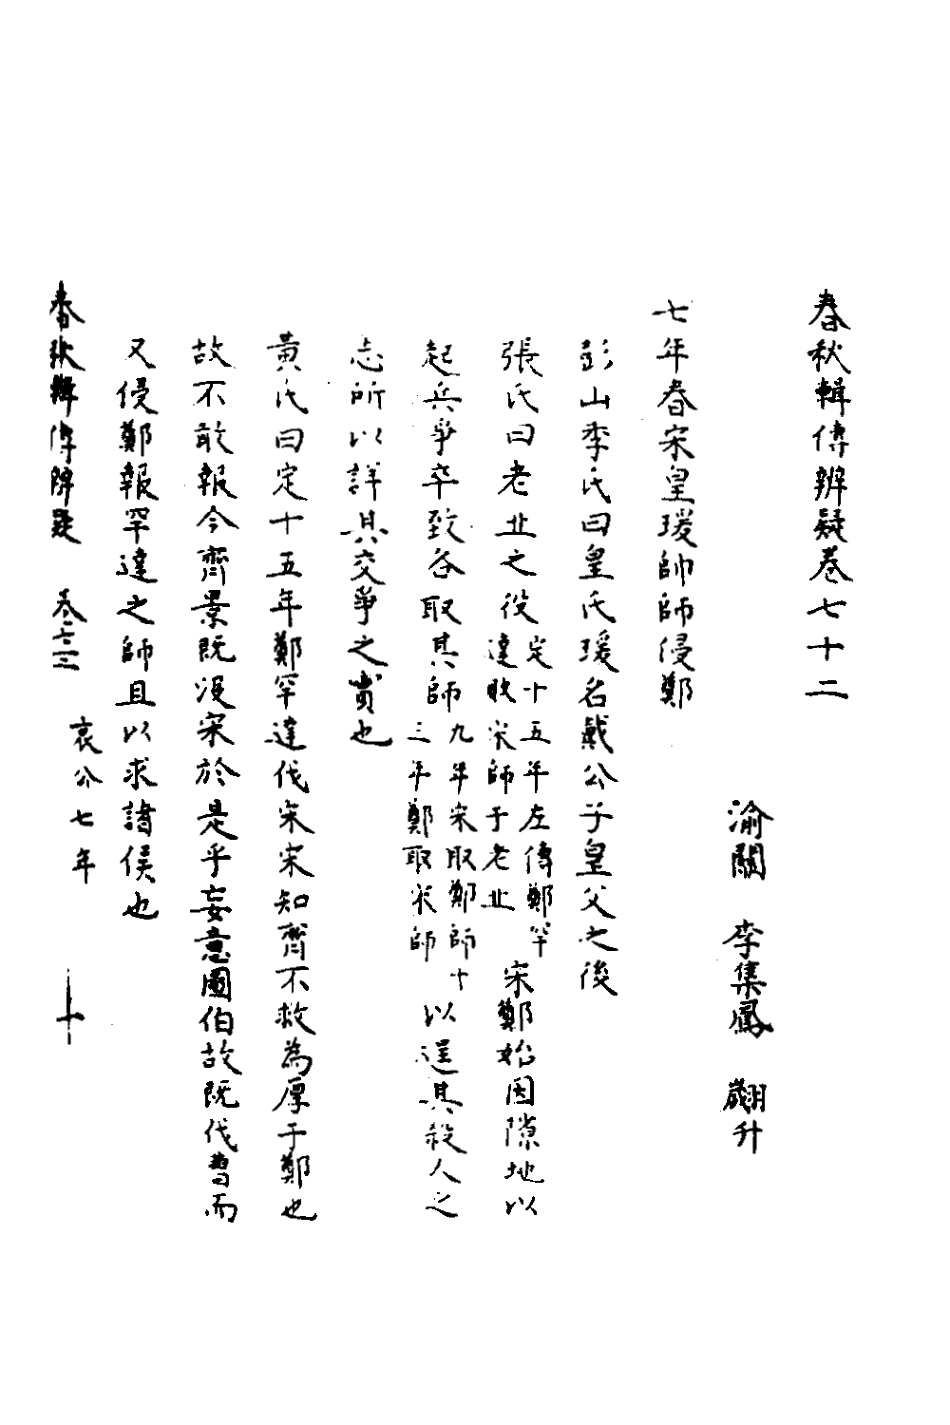 春秋輯傳辨疑卷七十二
渝關 李集鳳 翽升
七年春宋皇瑗帥師侵鄭
彭山季氏曰皇氏瑗名戴公子皇父之後
張氏曰老丘之役
定十五年左傳鄭罕
達敗宋師于老丘
宋鄭始因隙地以
起兵爭卒致各取其師
九年宋取鄭師十
三年鄭取宋師
以逞其殺人之
志所以詳其交爭之實也
黃氏曰定十五年鄭罕達伐宋宋知齊不救為厚于鄭也
故不敢報今齊景既沒宋於是乎妄意圖伯故既伐曹而
又侵鄭報罕達之師且以求諸侯也
春秋輯傳辨疑 卷七十二 哀公七年 一